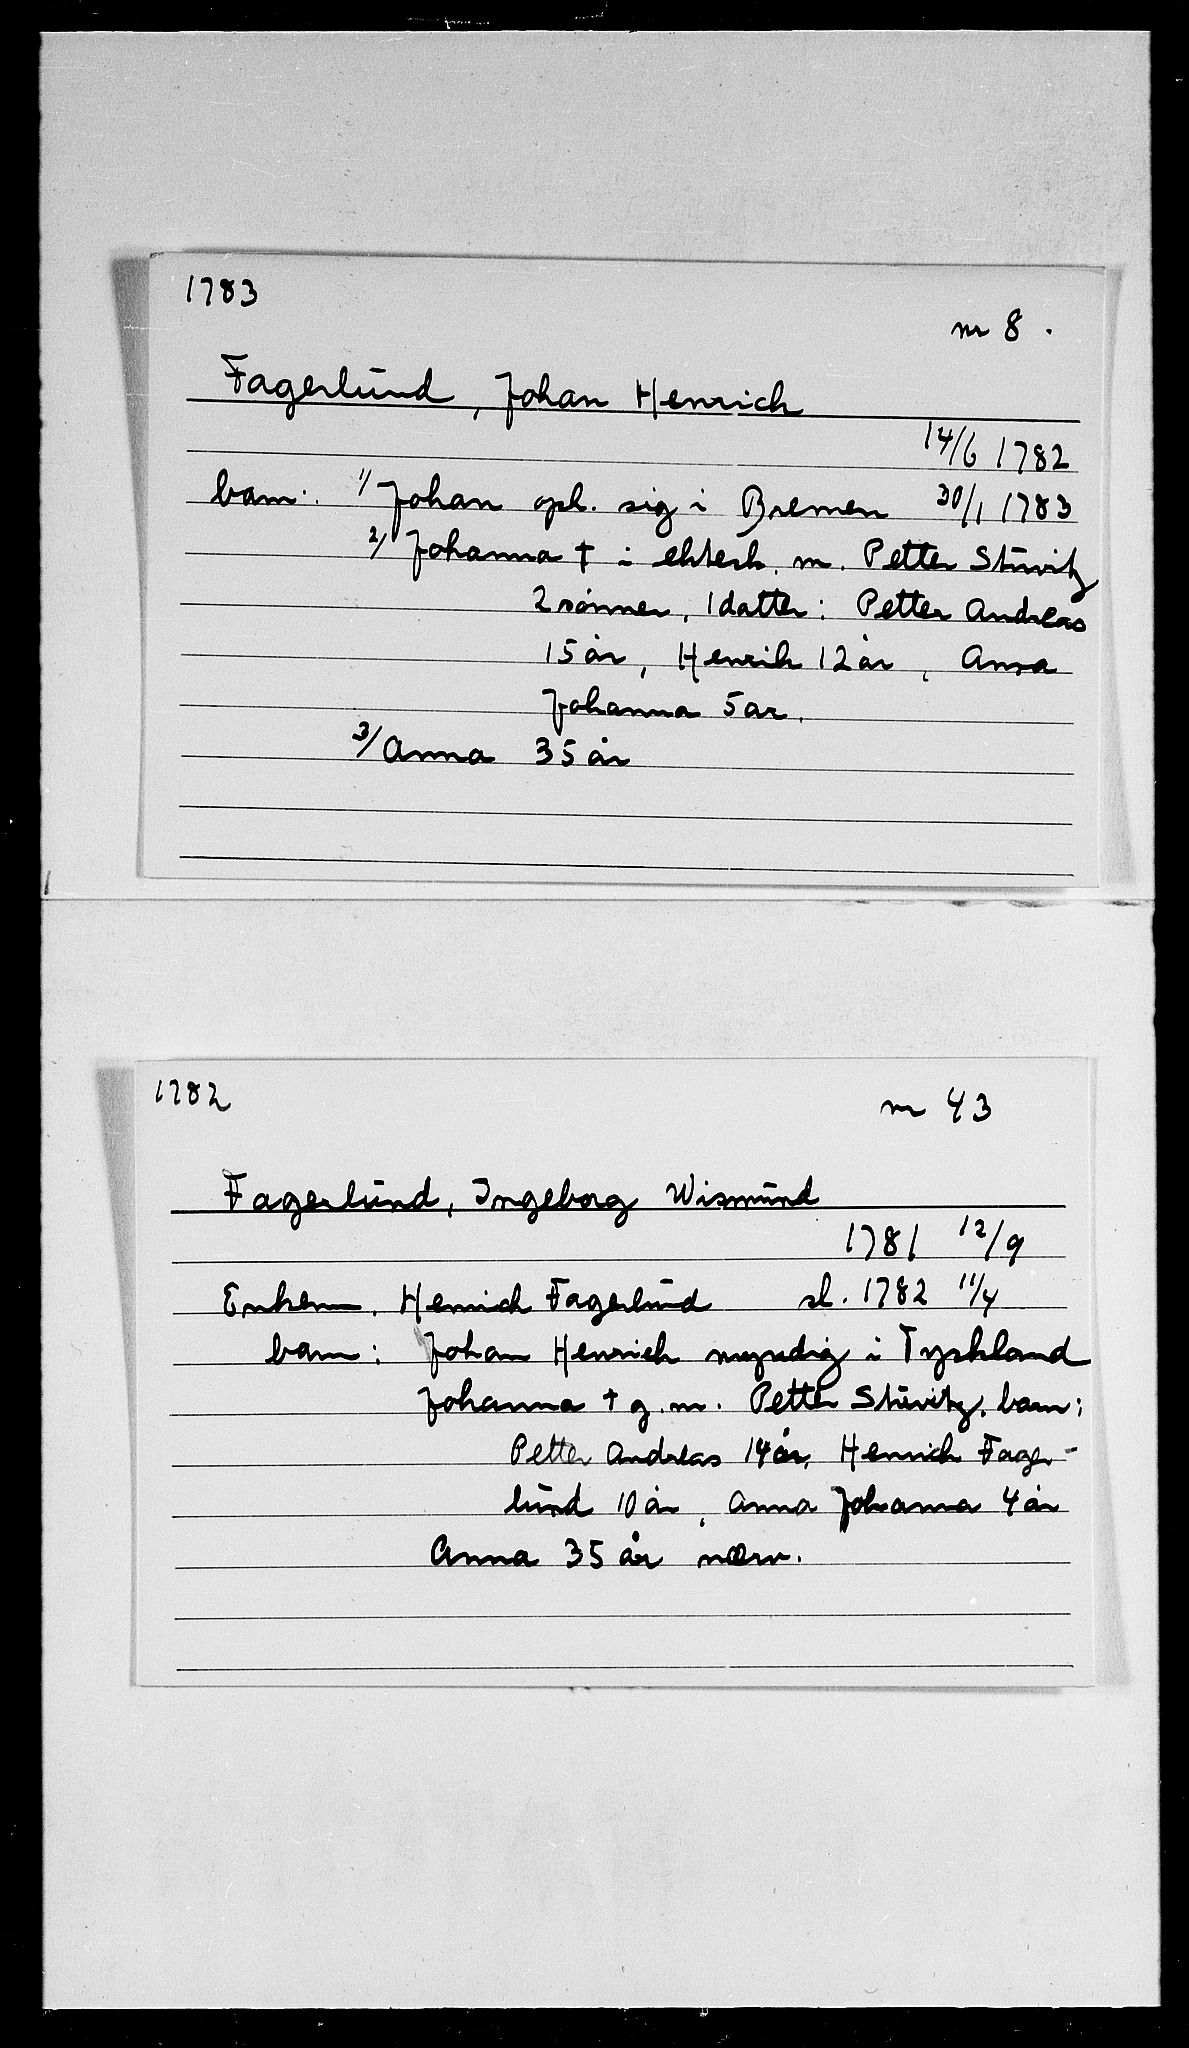 1783
nr 8.
Fagerlund, Johan Henrich
14/6 1782
barn: 1/ Johan oph. sig i Bremen 30/1 1783
2/ Johanna † i ektesk. m. Petter Stuvitz
2 sønner, 1 datter: Petter Andreas
15 år, Henrik 12 år, Anna
Johanna 5 ar.
3/ Anna 35 år
1782
nr 43
Fagerlund, Ingeborg Wismund
1781 12/9
Enkem. Henrich Fagerlund sl. 1782 11/4
barn: Johan Henrich myndig i Tyskland
Johanna † g.m. Petter Stuvitz, barn:
Petter Andreas 14 år, Henrich Fager-
lund 10 år, Anna Johanna 4 år
Anna 35 år nærv.